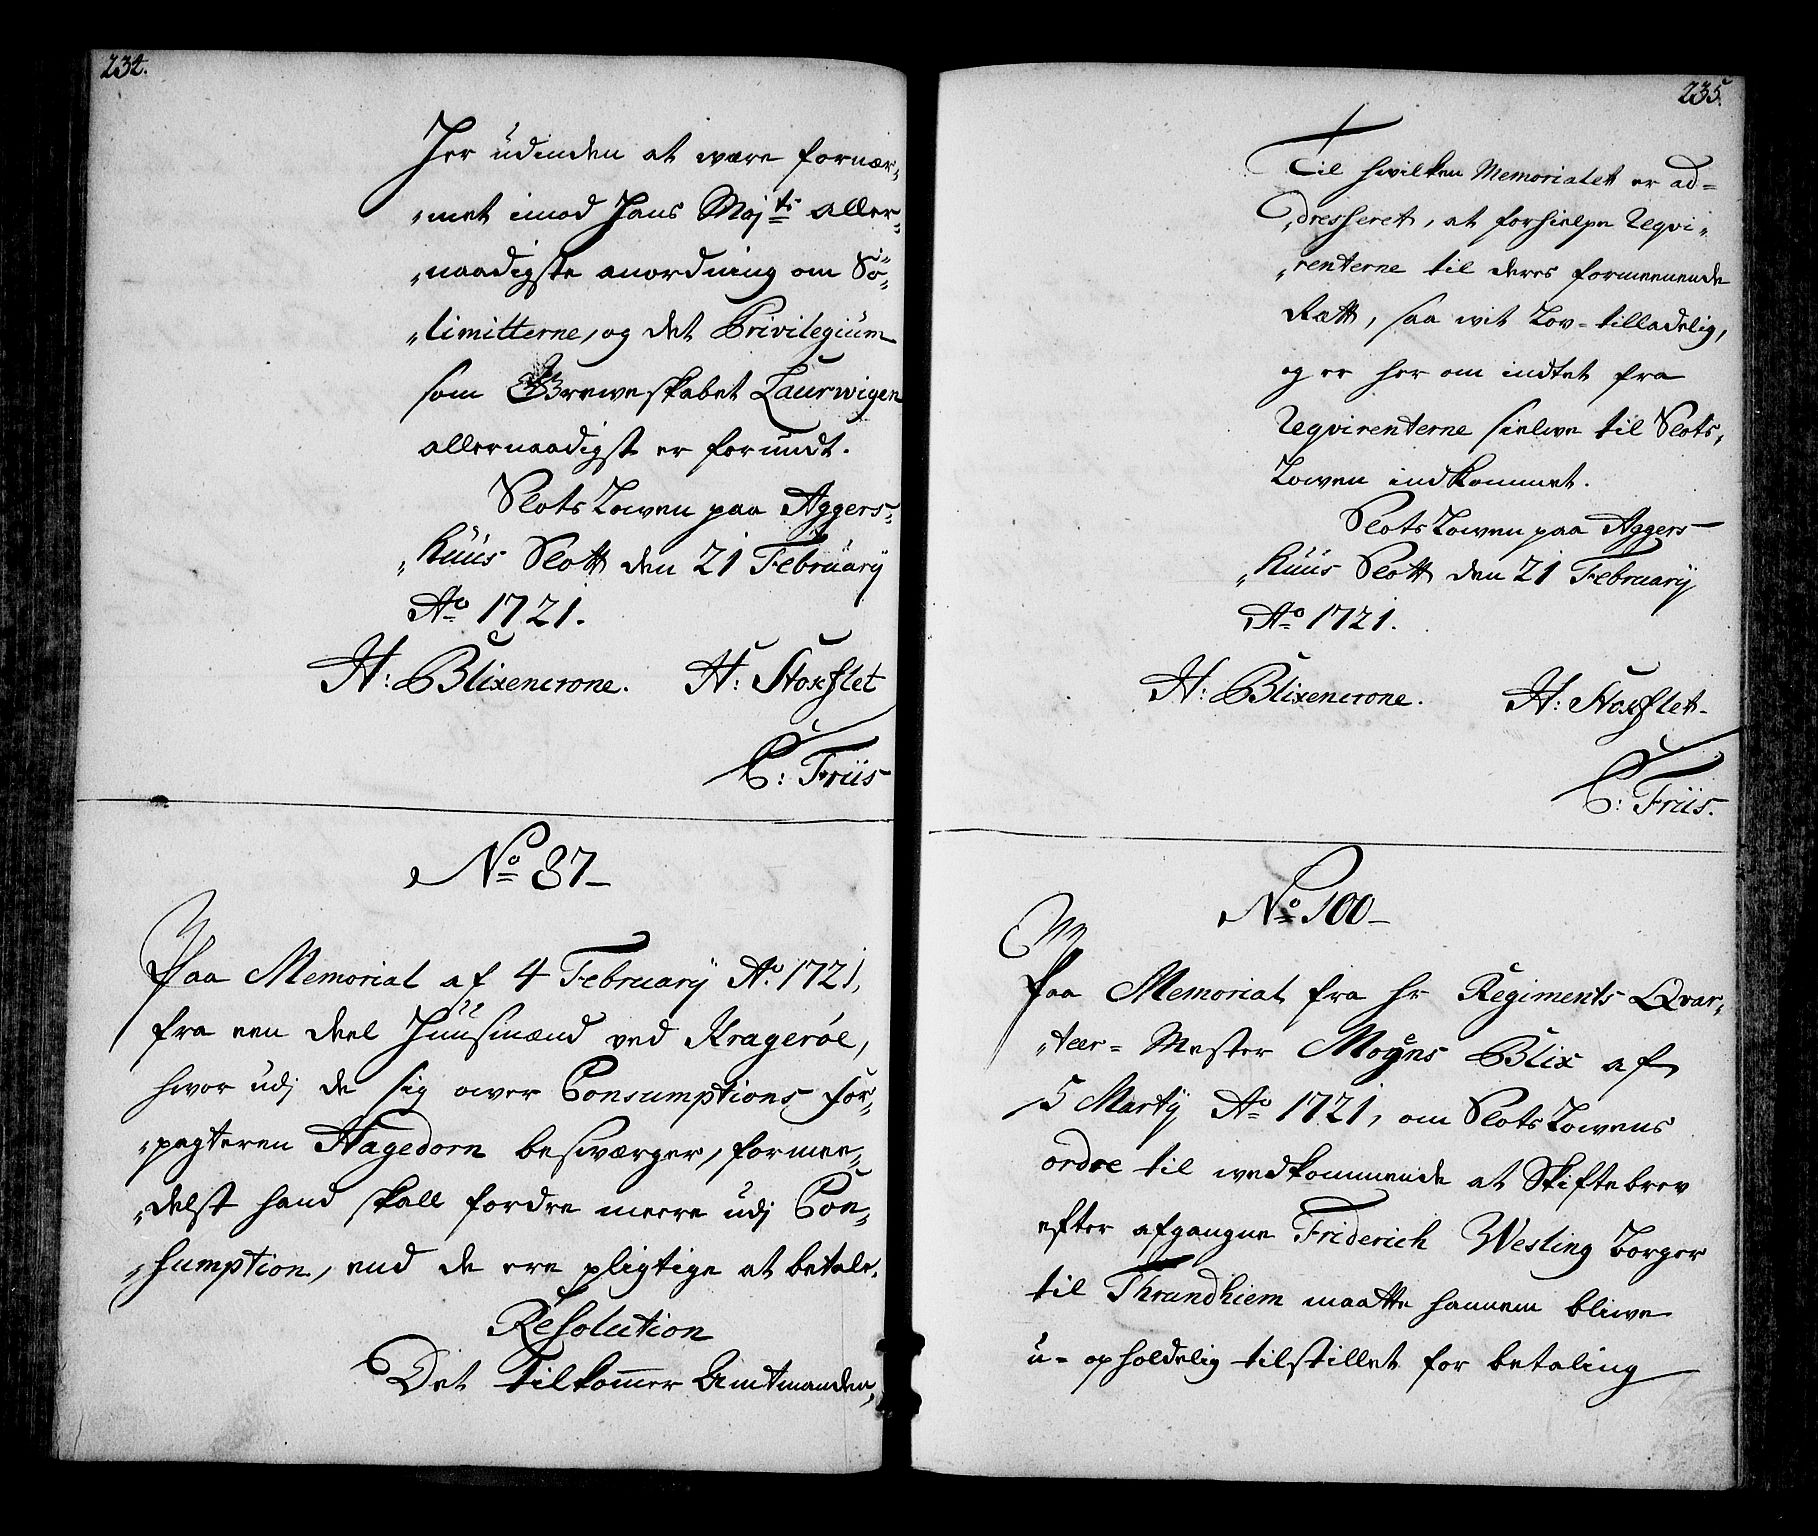 234.
Her udinden at være fornær„
„met imod Hans Maj:ts aller„
„naadigste anordning om Sø„
„limitterne, og det Privilegium
som Greweskabet Laurwigen
allernaadigst er forundt.
Slots Lowen paa Aggers„
„huus Slott den 21 February
Ao 1721.
H: Blixencrone. H: Stokflet
C: Friis
No 87
Paa Memorial af 4 February Ao 1721,
fra een deel Huusmænd ved Kragerøe,
hvor udj de sig ower Consumptions for„
„pagteren Hagedorn besværger, formee„
„delst hand skall fordre meere udj Con„
„sumption, end de ere pligtige at betale.
Resolution
Det tilkommer Amtmanden,
235.
Til hwilken Memorialet er ad=
„dresseret, at forhielpe Reqvi„
„renterne til deres formeenende
Rætt, saa wit Lov-tilladelig,
og er her om indtet fra
Reqvirenterne sielwe til Slots„
Lowen indkommet.
Slots Lowen paa Aggers
„huus Slott den 21 February
Ao 1721.
H: Blixencrone. H: Stokflet
C: Friis.
No 100
Paa Memorial fra hr Regiments Qvar„
„teer= Mester Moyns Blix af
5 Marty Ao 1721, om Slots Lowens
ordre til wedkommende at Skiftebrev
efter afgangne Friderich Wesling borger
til Thrundhiem maatte hannem bliwe
u-opholdelig tilstillet for betaling